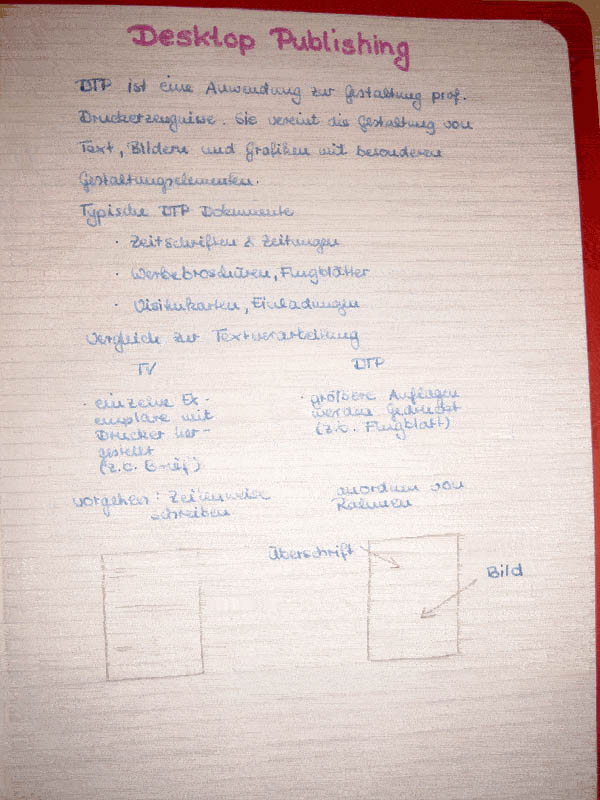 Desktop Publishing
DTP ist eine Anwendung zur Gestaltung prof.
Druckerzeugnisse. Sie vereint die Gestaltung von
Text, Bildern und Grafiken mit besonderen
Gestaltungselementen.
Typische DTP Dokumente
· Zeitschriften & Zeitungen
· Werbebroschüren, Flugblätter
· Visitenkarten, Einladungen
Vergleich zur Textverarbeitung
TV DTP
· einzelne Ex- · größere Auflagen
emplare mit werden gedruckt
Drucker her- (z.B. Flugblatt)
gestellt
(z.B. Brief)
vorgehen: Zeilenweise anordnen von
schreiben Rahmen
Überschrift
Bild